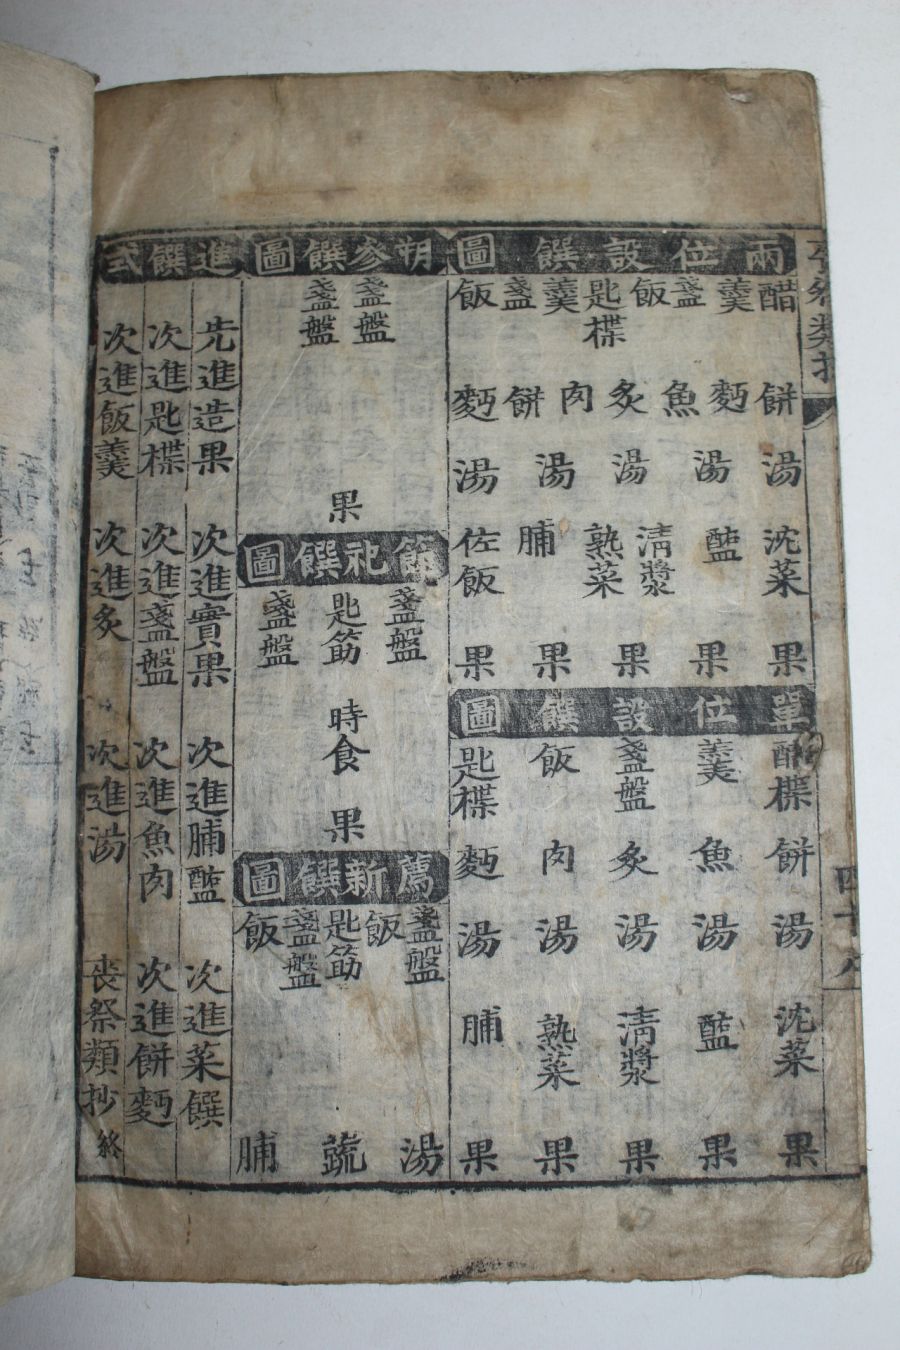 兩位設饌圖
醋羹盞飯匙楪羹盞飯
餠麪魚炙肉餠麪
湯湯湯湯湯
沈菜醢淸漿熟菜脯佐飯
果果果果果
單位設饌圖
醋楪羹盞盤飯匙楪
餠魚炙肉麪
湯湯湯湯湯
沈菜醢淸漿熟菜脯
果果果果果
朔參饌圖
盞盤盞盤
果
節祀饌圖
盞盤匙筯盞盤
時食
果
薦新饌圖
盞盤飯匙筯盞盤飯
湯蔬脯
進饌式
先進造果次進實果次進脯醢次進菜饌
次進匙楪次進盞盤次進魚肉次進餠麪
次進飯羹次進炙次進湯
喪祭類抄終
四十八